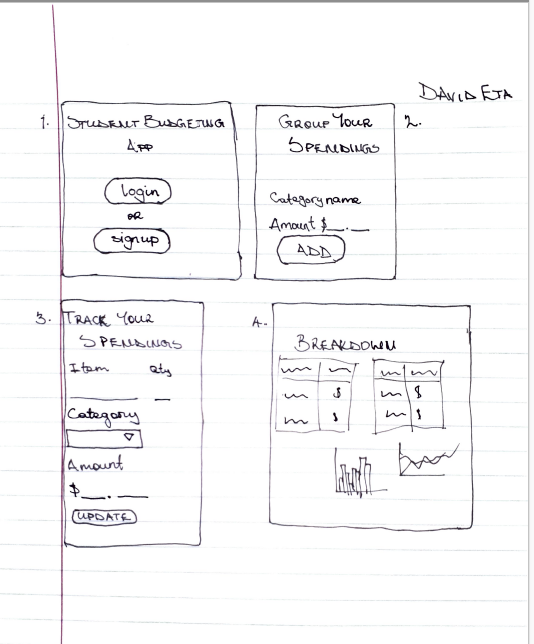 DAVID ETA
1.
STUDENT BUDGETING
APP
login
OR
signup
2.
GROUP YOUR
SPENDINGS
Category name
Amount $__.__
ADD
3.
TRACK YOUR
SPENDINGS
Item Qty
Category
Amount
$__.__
UPDATE
4.
BREAKDOWN
$ $
$ $